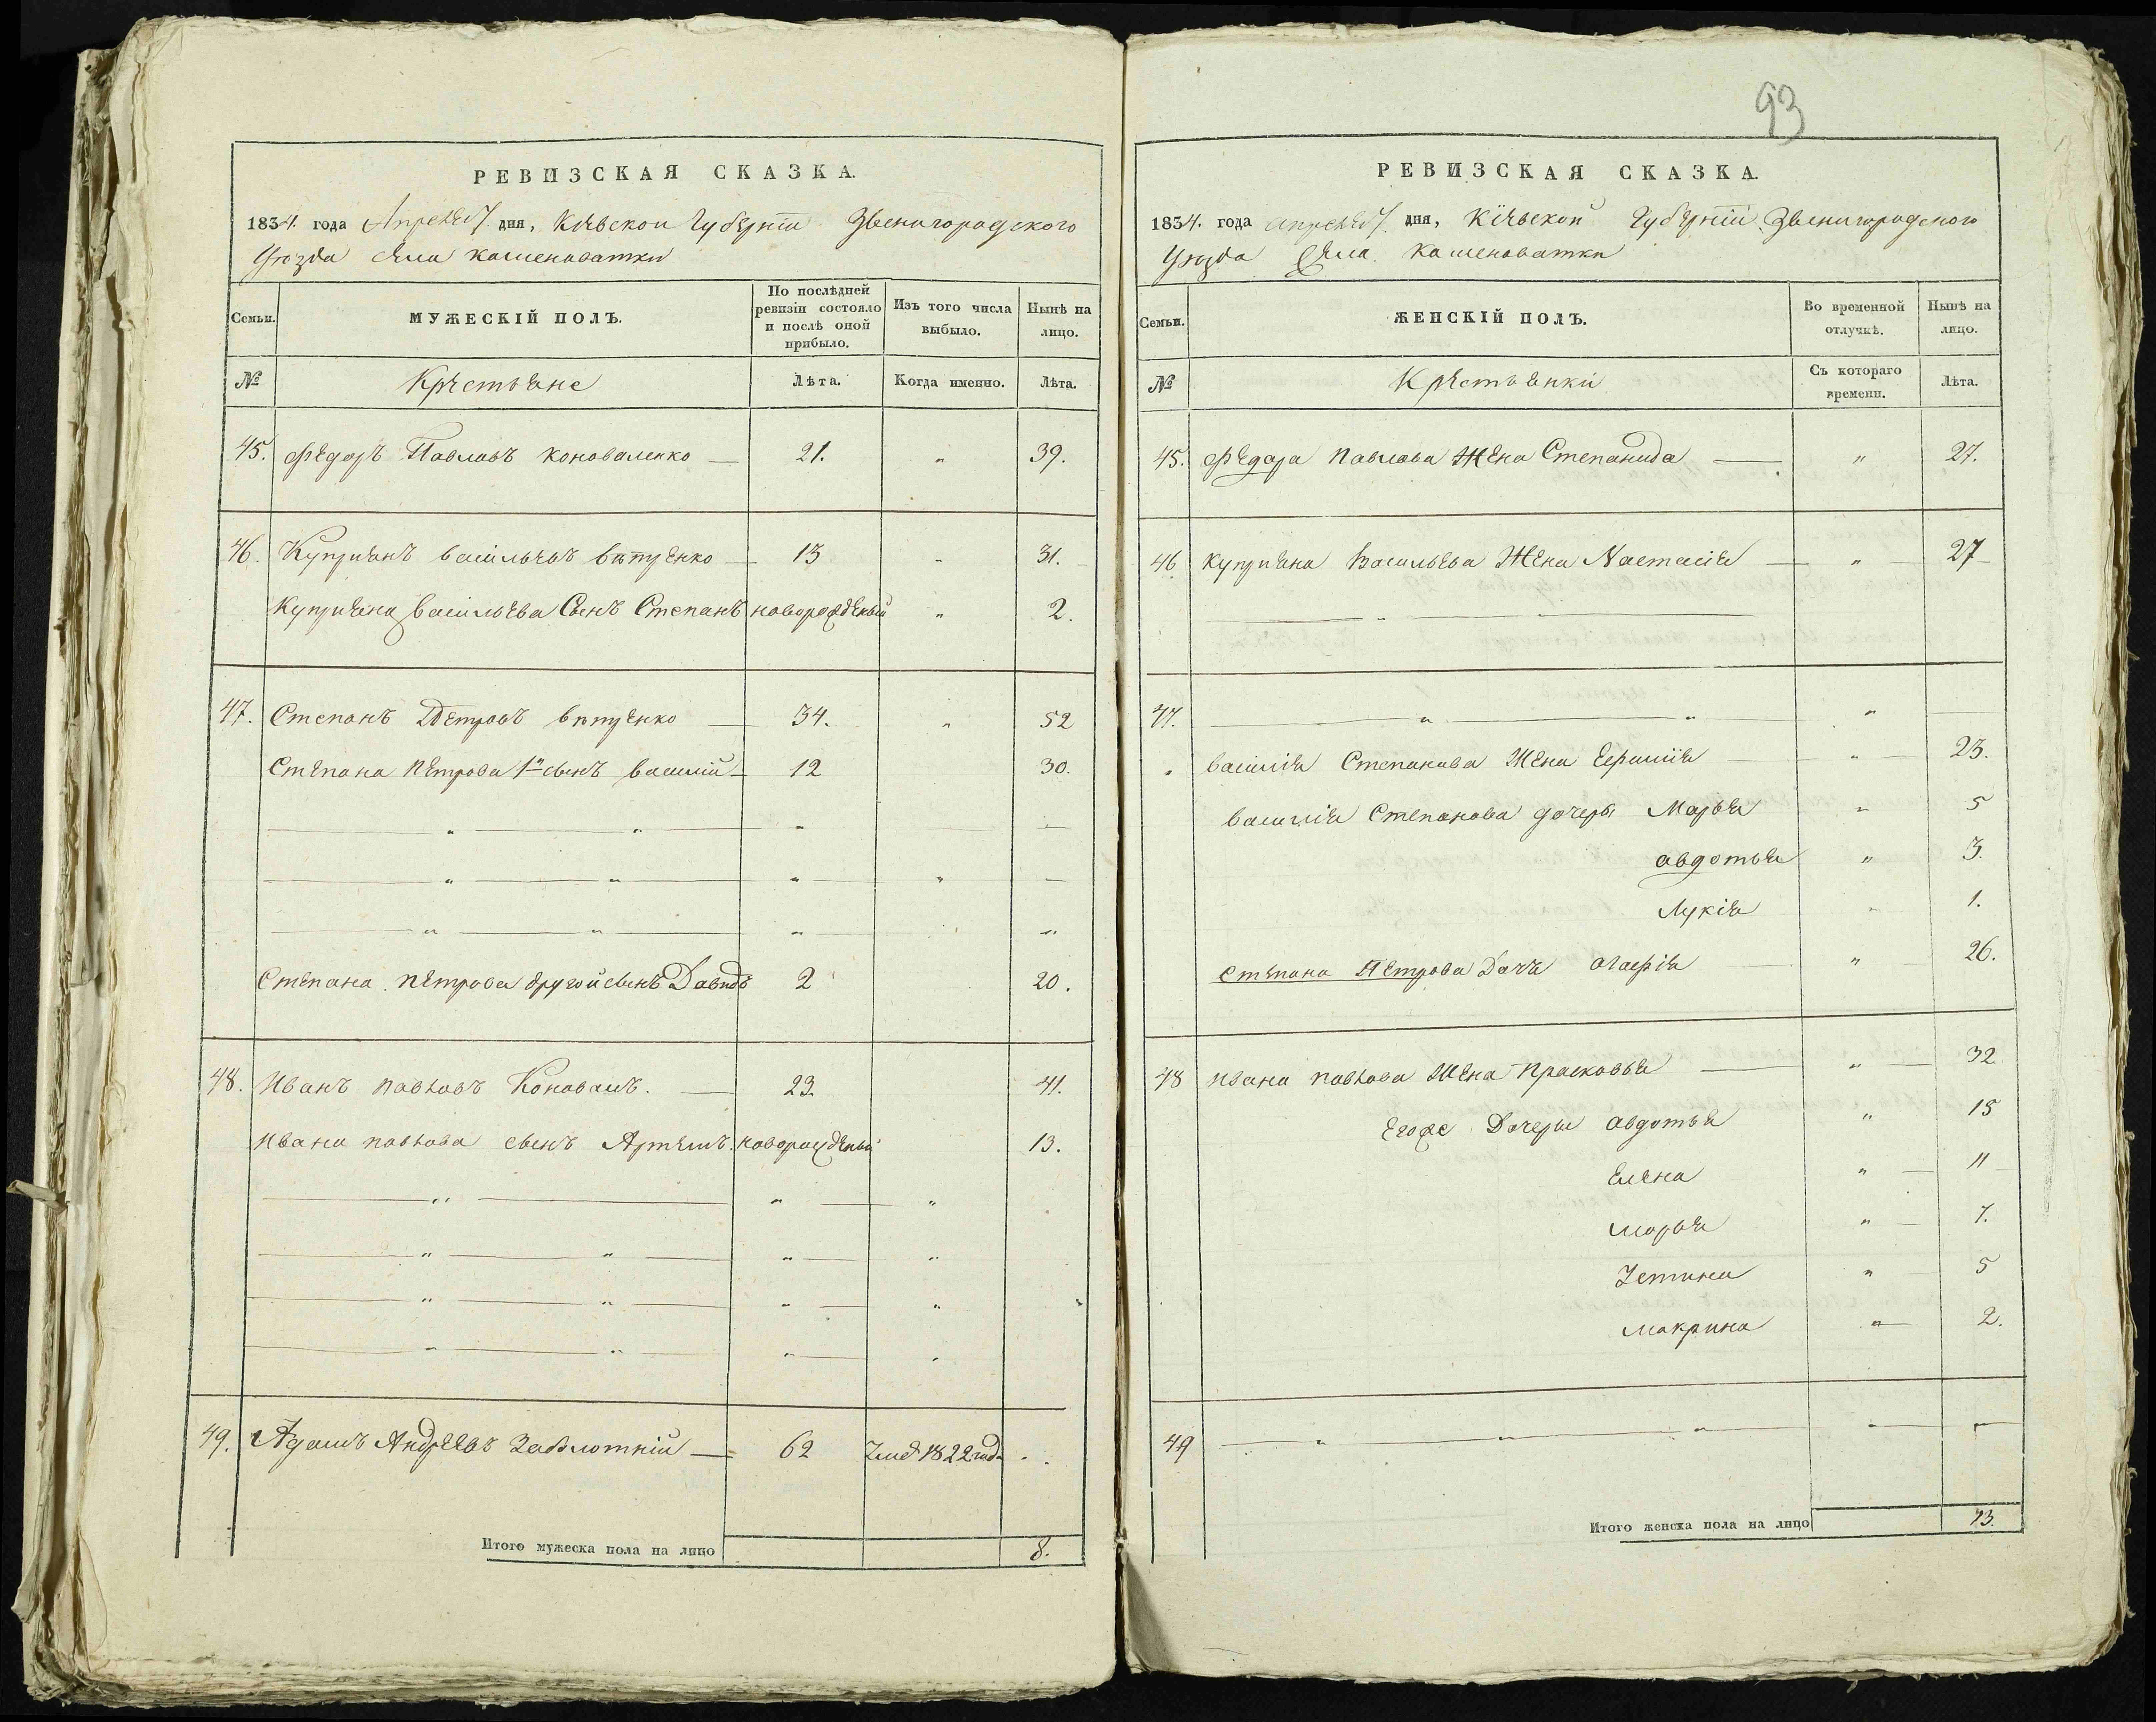 93
РЕВИЗСКАЯ СКАЗКА.
1834. года Апреля 7 дня, Кіевской Губерніи Звенигородского
Уезда села Каменоватки
Семьи. МУЖЕСКІЙ ПОЛЪ. По послѣдней ревизіи состояло и послѣ оной прибыло. Изъ того числа выбыло. Нынѣ на лицо.
№ Крестьяне Лѣта. Когда именно. Лѣта.
45. Федоръ Павловъ Коноваленко — 21. „ 39.
46. Куприянъ Васильевъ Вѣтренко — 13 „ 31.
Куприяна Васильева Сынъ Степанъ новорожденый „ 2.
47. Степанъ Петровъ Вѣтренко — 34. „ 52
Степана Петрова 1й сынъ Василій — 12 30.
Степана Петрова другой сынъ Давидъ 2 20.
48. Иванъ Павловъ Коновалъ. — 23 41.
Ивана Павлова сынъ Артемъ. новорожденый 13.
49. Адамъ Андреевъ Заблотній — 62 1822 года
Итого мужеска пола на лицо 8.
РЕВИЗСКАЯ СКАЗКА.
1834. года Апреля 7. дня, Кіевской Губерніи Звенигородского
Уезда Села Каменоватки
Семьи. ЖЕНСКІЙ ПОЛЪ. Во временной отлучкѣ. Нынѣ на лицо.
№ Крестьянки Съ котораго времени. Лѣта.
45. Федора Павлова Жена Степанида — „ 27.
46 Куприяна Васильева Жена Настасія — „ 27
47. „ „ „
Василія Степанова Жена — „ 23.
Василія Степанова дочери Марья „ 5
Авдотья „ 3.
Лукія „ 1.
Степана Петрова Дочь Агафія — „ 26.
48 Ивана Павлова Жена Прасковья — „ 32
Егоже Дочери Авдотья „ 15
Елена „ 11
Марья „ 7.
„ 5
Макрина „ 2.
49 „ „ „
Итого женска пола на лицо 13.